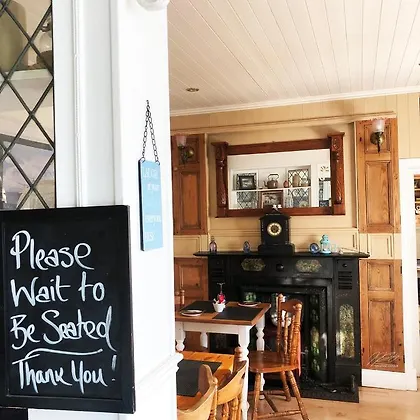 Please
Wait to
Be Seated
Thank You!